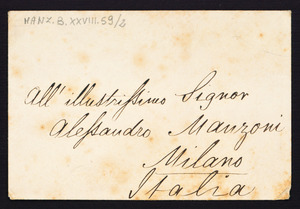 MANZ.B.XXVIII.59/2
All' illustrissimo Signor
Alessandro Manzoni
Milano
Italia